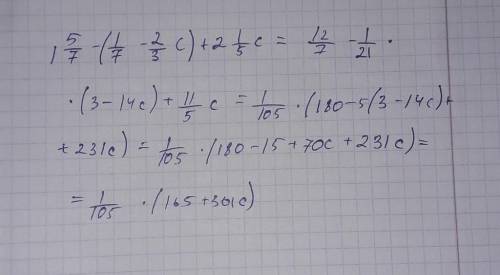 1 5/7 - (1/7 - 2/3 c) + 2 1/5 c = 12/7 - 1/21 ·
· (3 - 14c) + 11/5 c = 1/105 · (180 - 5(3 - 14c) +
+ 231c) = 1/105 · (180 - 15 + 70c + 231c) =
= 1/105 · (165 + 301c)